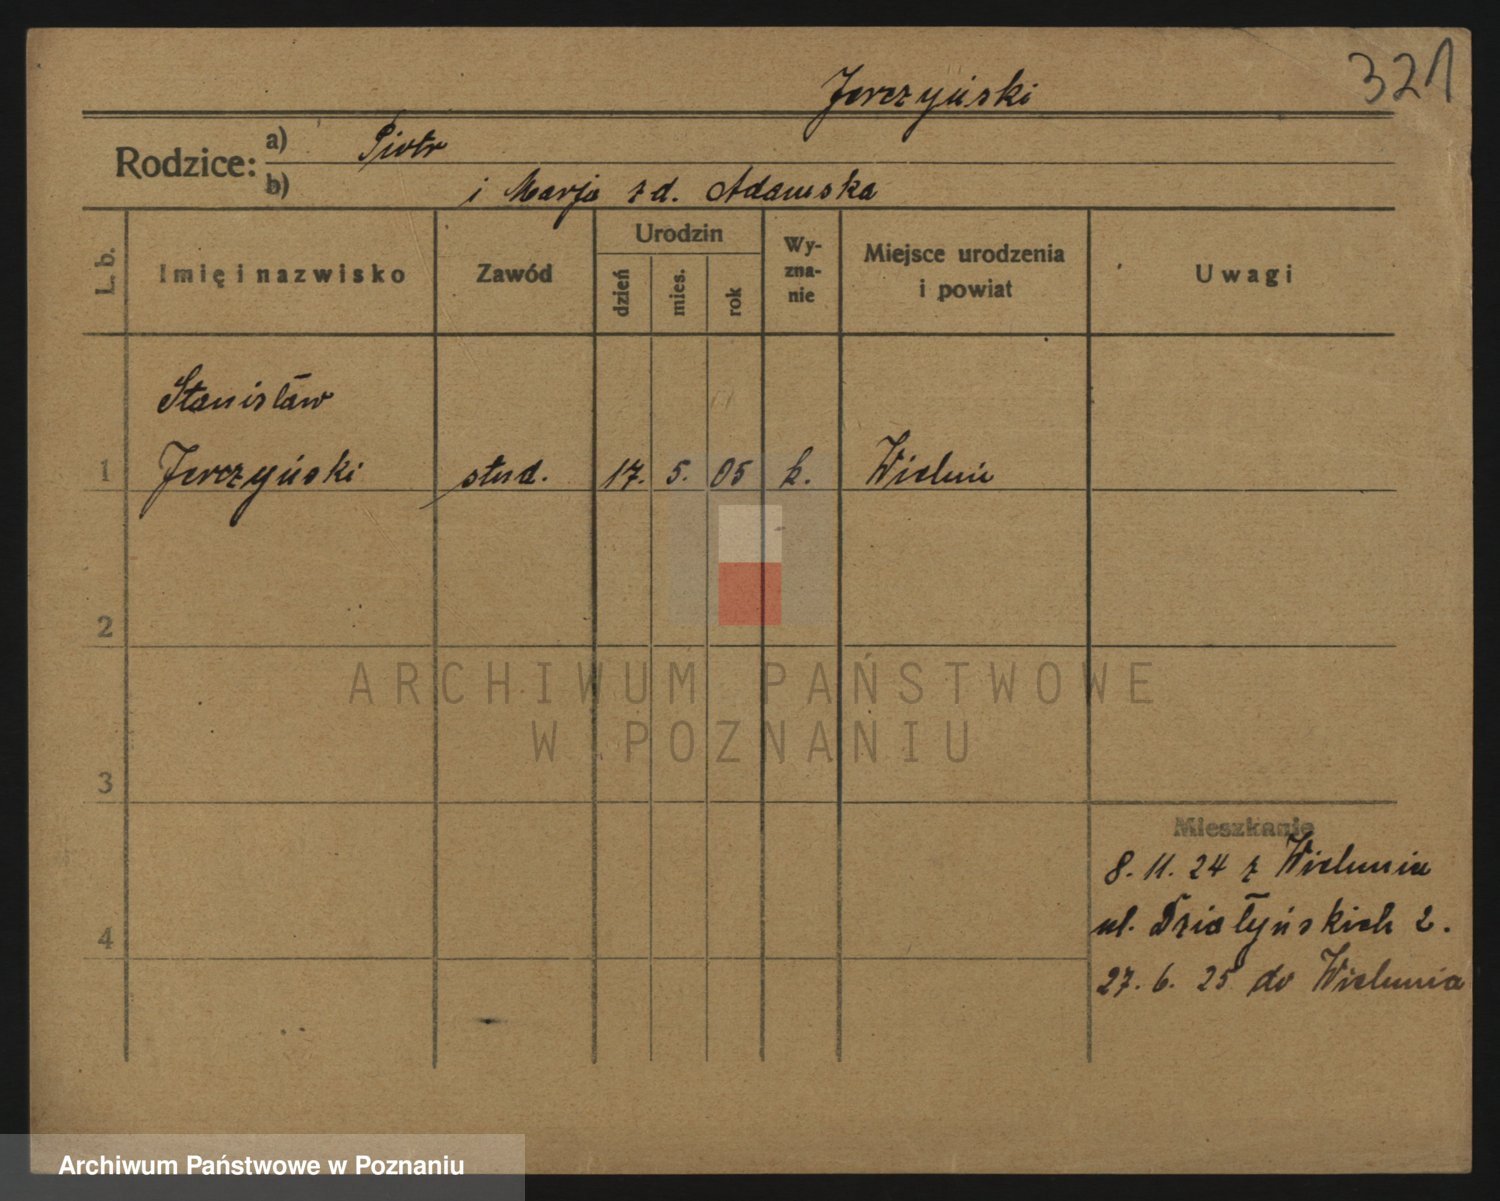 321
Jerczyński
Rodzice: a) Piotr
b) i Marja z d. Adamska
L. b. Imię i nazwisko Zawód Urodzin dzień mies. rok Wyznanie Miejsce urodzenia i powiat Uwagi
Stanisław
1 Jerczyński stud. 17. 5. 05 k. Wieluń
2
3
4
Mieszkanie
8. 11. 24 z Wielunia
ul. Działyńskich 2.
27. 6. 25 do Wielunia
ARCHIWUM PAŃSTWOWE
W POZNANIU
Archiwum Państwowe w Poznaniu